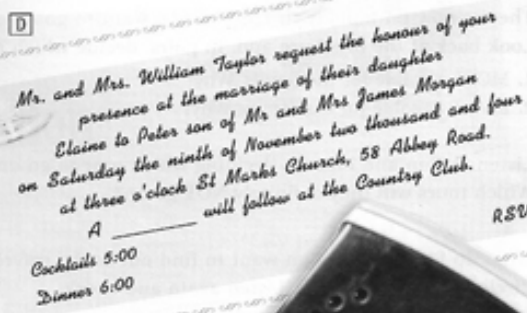 D
Mr. and Mrs. William Taylor request the honour of your
presence at the marriage of their daughter
Elaine to Peter son of Mr and Mrs James Morgan
on Saturday the ninth of November two thousand and four
at three o'clock St Marks Church, 58 Abbey Road.
A __________ will follow at the Country Club.
RSV
Cocktails 5:00
Dinner 6:00